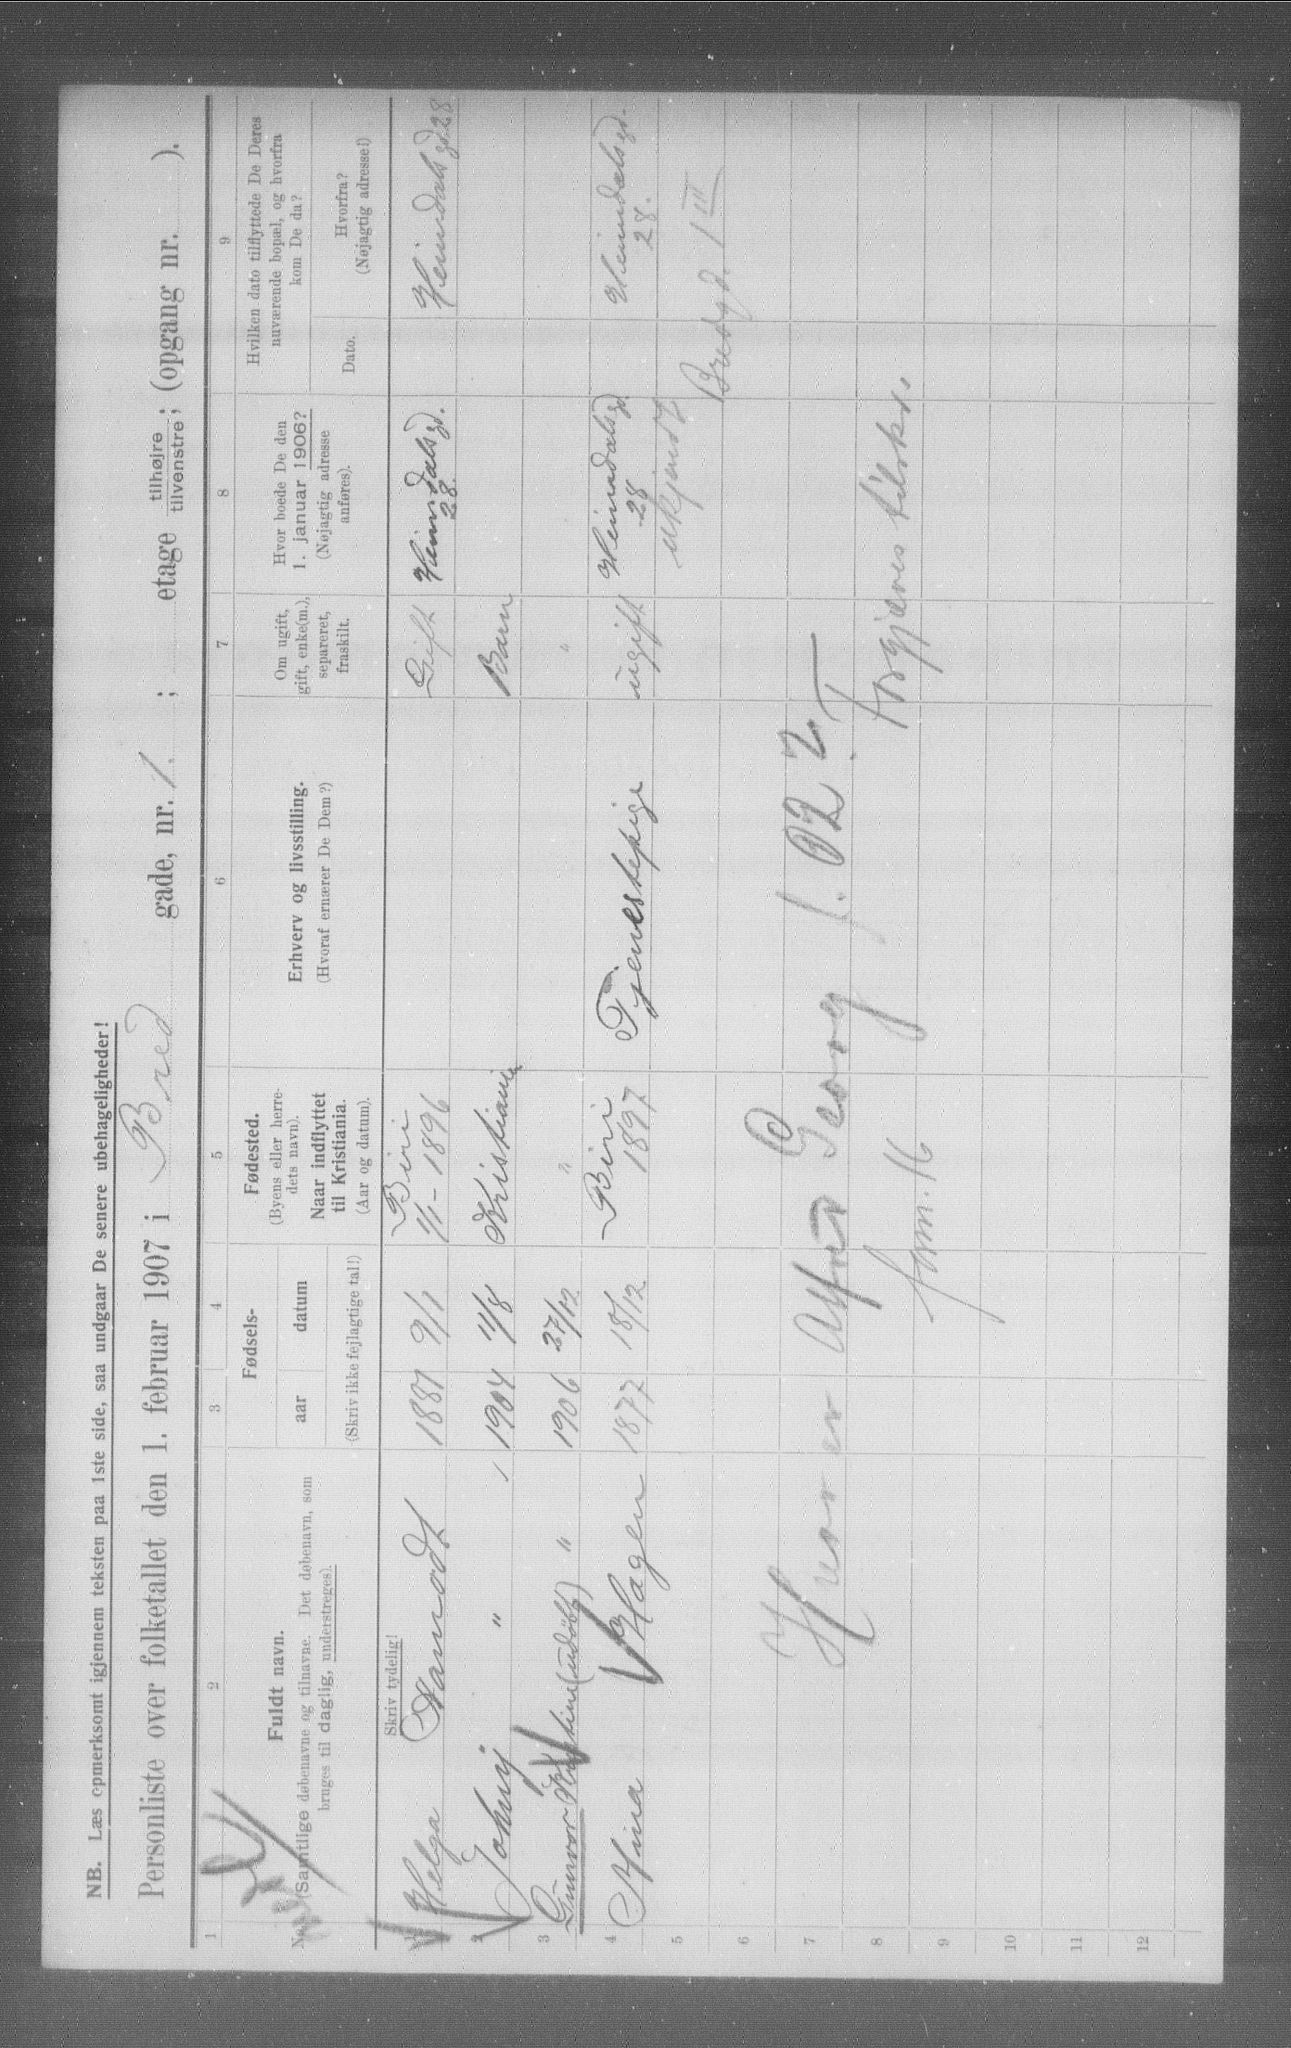 NB. Læs opmerksomt igjennem teksten paa 1ste side, saa undgaar De senere ubehageligheder!
Personliste over folketallet den 1. februar 1907 i Bred gade, nr. 1. ; etage tilhøjre ; (opgang nr. ).
tilvenstre ;
1 2 3 4 5 6 7 8 9
Fuldt navn.
(Samtlige døbenavne og tilnavne. Det døbenavn, som
bruges til daglig, understreges).
Fødsels-
aar datum
(Skriv ikke fejlagtige tal!)
Fødested.
(Byens eller herre-
dets navn).
Naar indflyttet
til Kristiania.
(Aar og datum).
Erhverv og livsstilling.
(Hvoraf ernærer De Dem?)
Om ugift,
gift, enke(m.),
separeret,
fraskilt.
Hvor boede De den
1. januar 1906?
(Nøjagtig adresse
anføres).
Hvilken dato tilflyttede De Deres
nuværende bopæl, og hvorfra
kom De da?
Dato.
Hvorfra?
(Nøjagtig adresse!)
Skriv tydelig!
1 Helga 1881 9/1 Biri Gift Heimdalsgd. Heimdalsgd 28
1/1 - 1896 28.
2 Johnij " 1904 11/8 Kristiania Barn
3 Gunvor Kristine (udöbt) " 1906 27/12 " " "
4 Mina Hagen 1877 18/12 Biri Tjenestepige ugift Heimdalsgd Heimdalsgd.
1897 28 28.
5 ukjendt Bredgd. 1 III
6
7 Hvor er Alfred Georg f. 02 ?
8 forgjæves tilsøkt.
9 form. 16
10
11
12